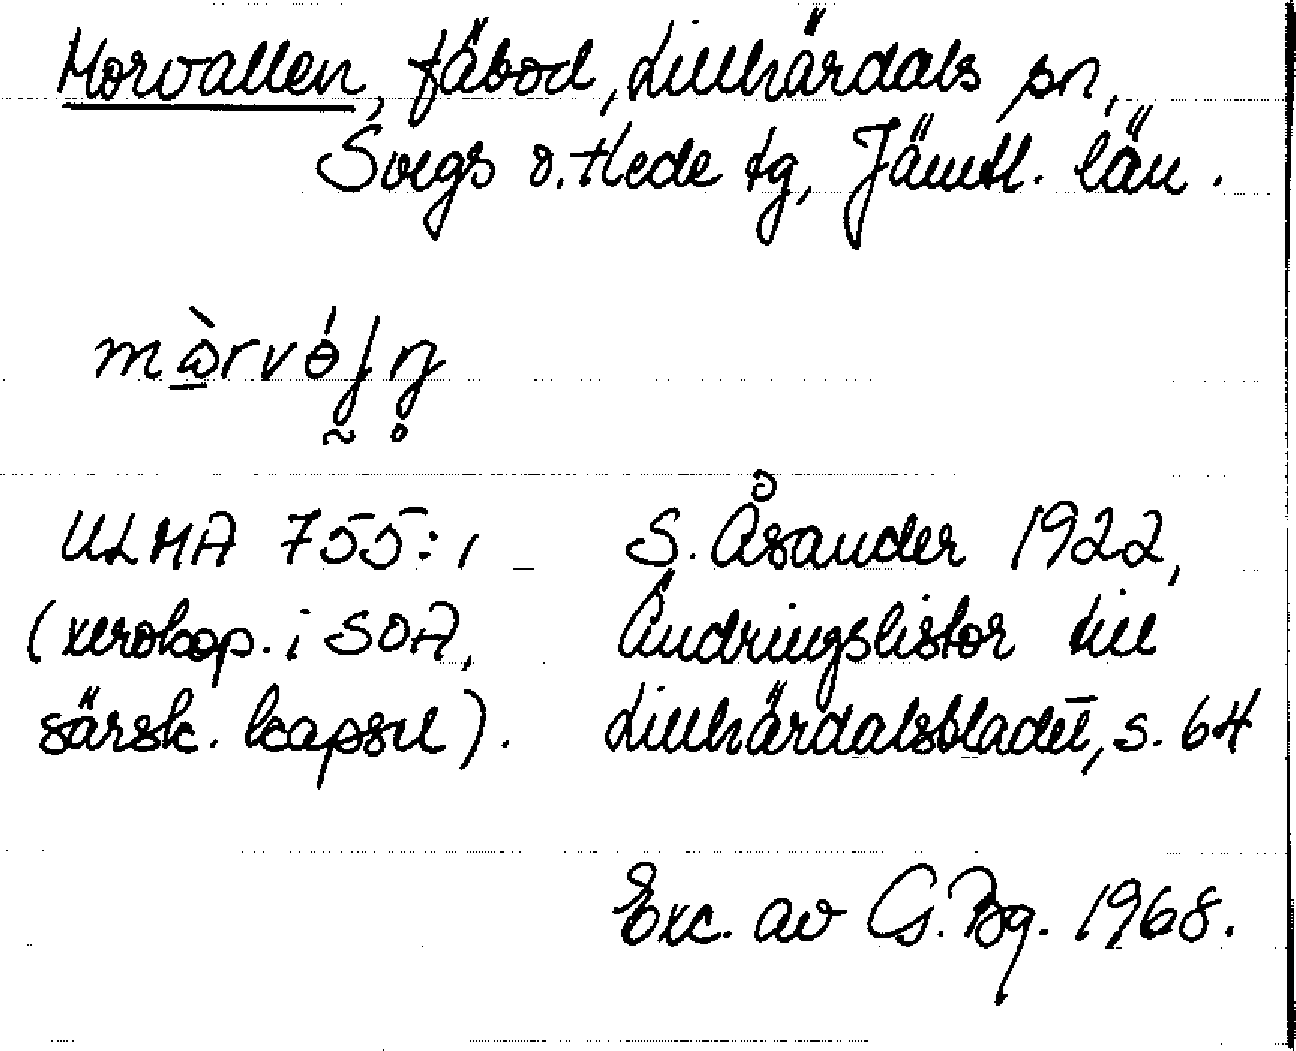 Morvallen, fäbod, Lillhärdals sn,
Svegs o. Hede tg, Jämtl. län.
ULMA 755:1 S. Åsander 1922,
(xerokop. i SOA, Ändringslistor till
särsk. kapsel). Lillhärdalsbladet, s. 64
Exc. av G. Bg. 1968.